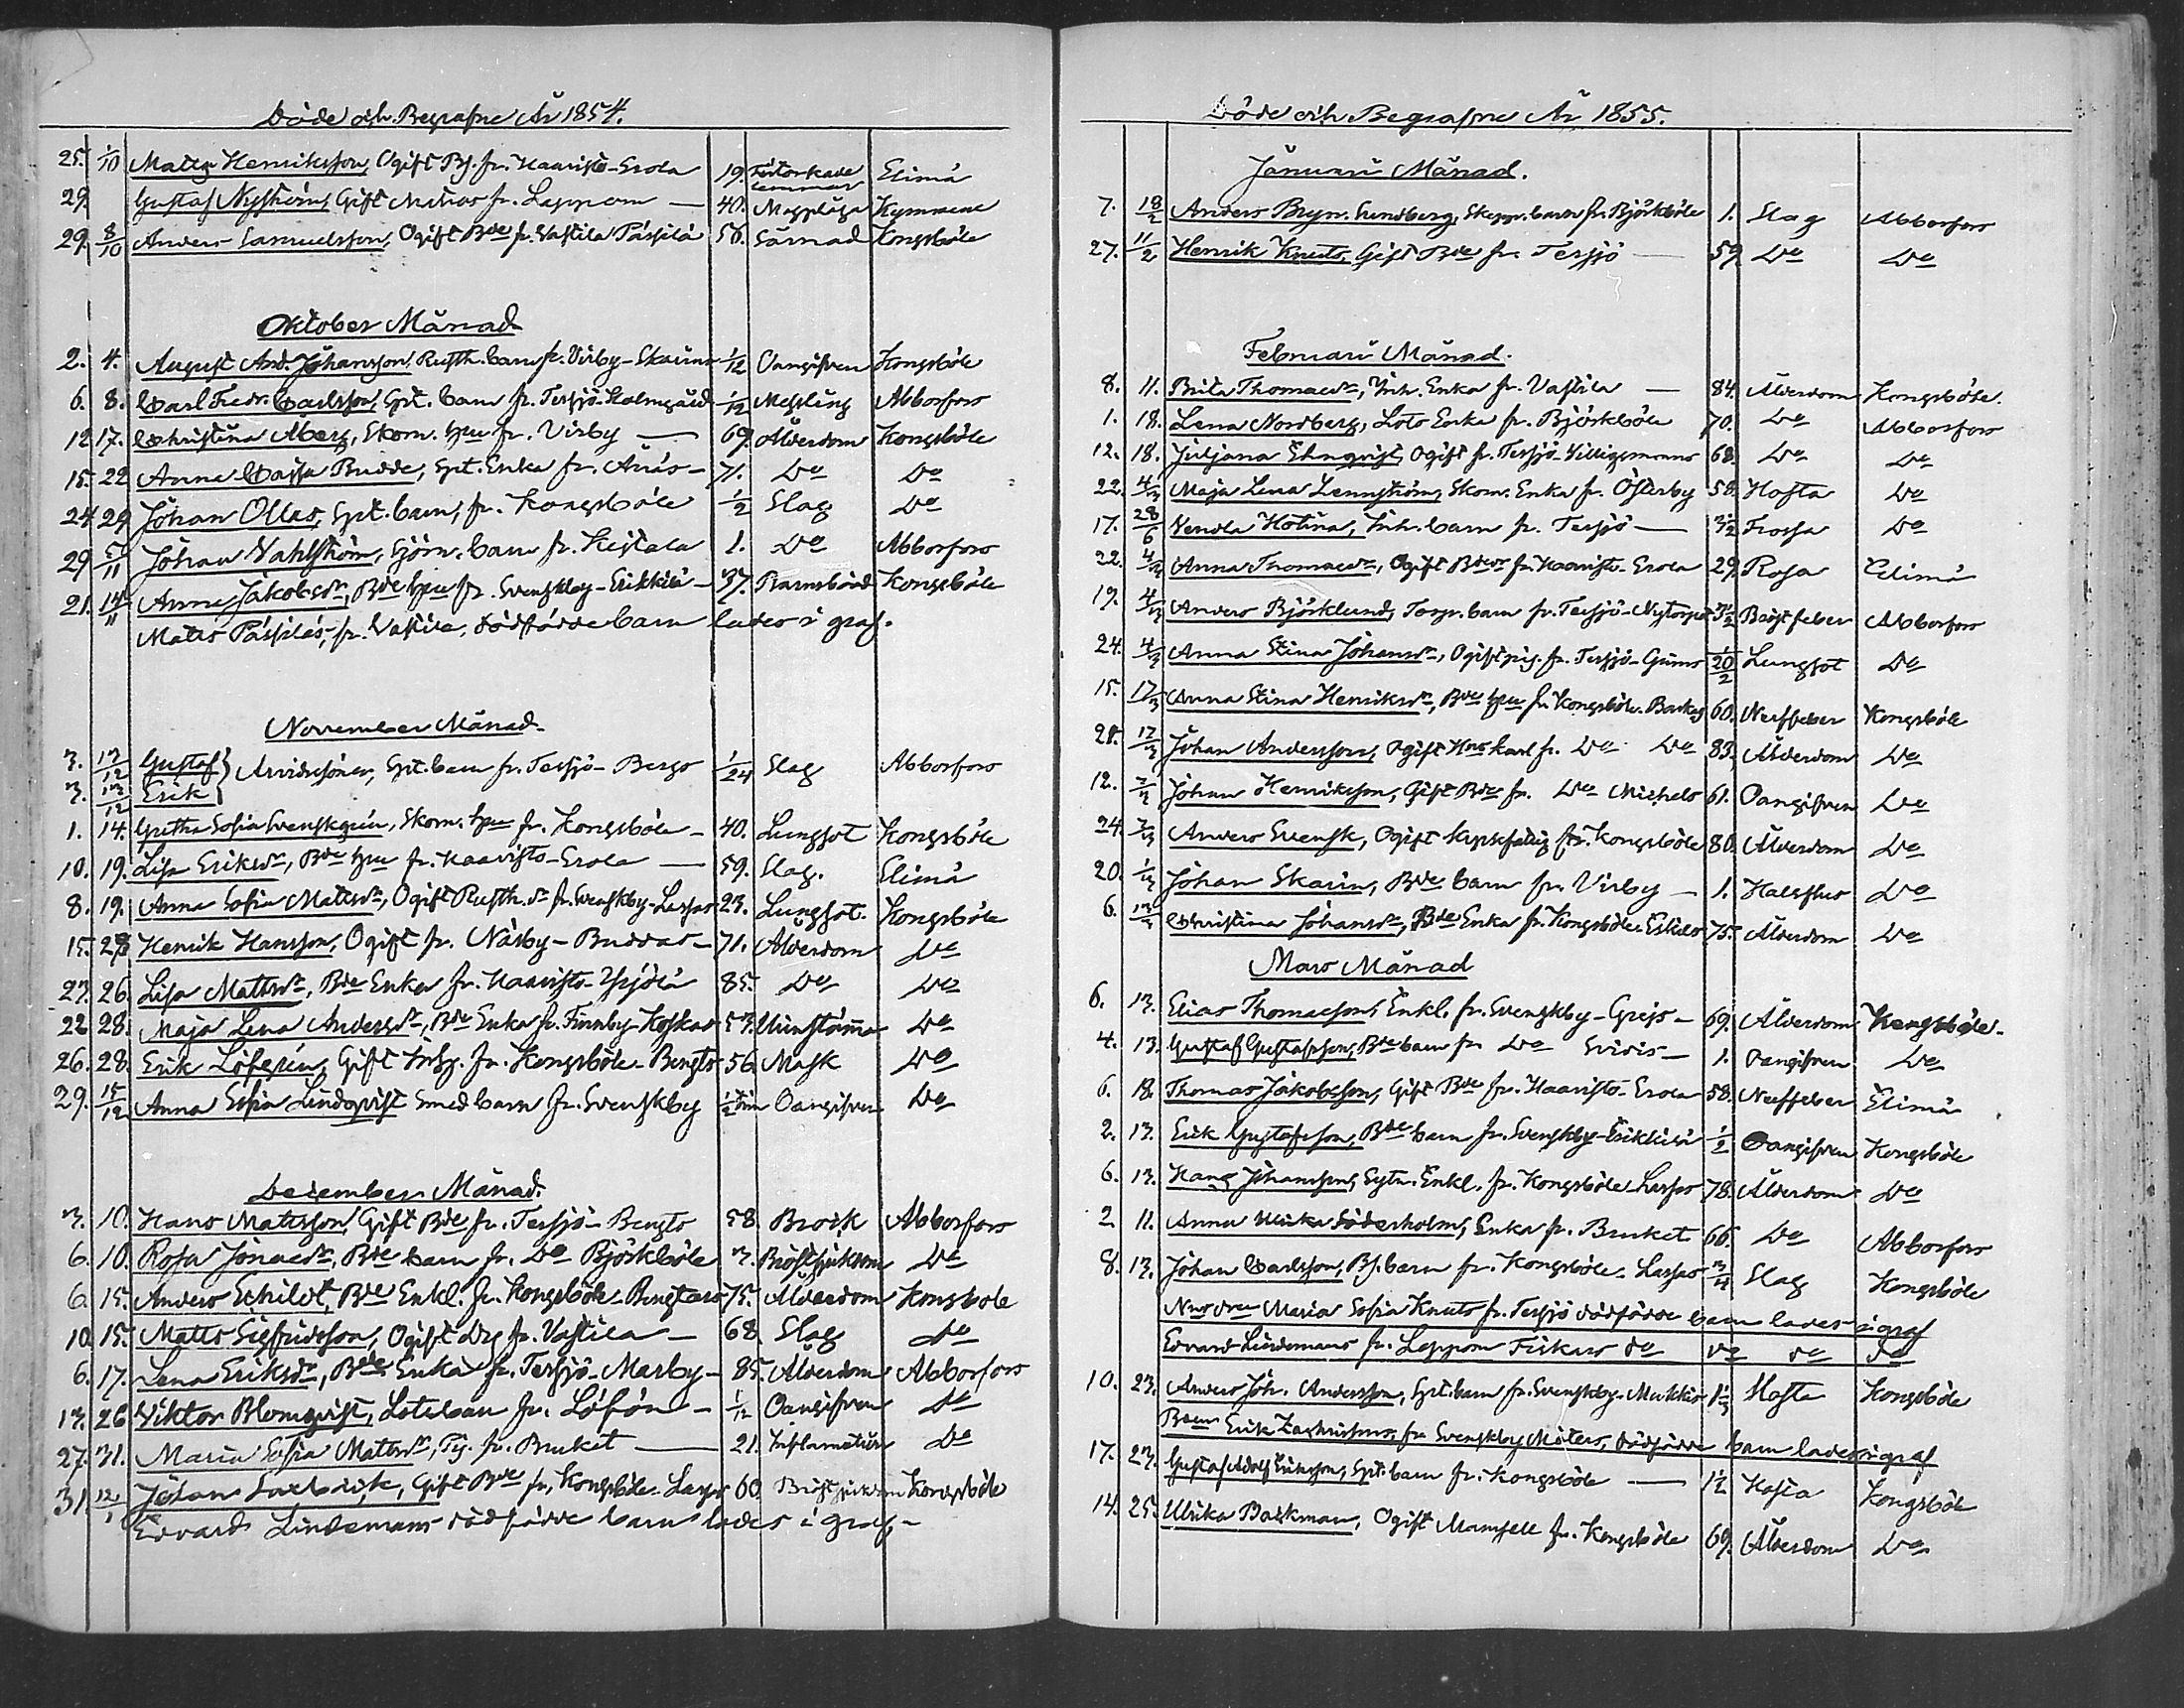 Döde och Begrafne År 1854.
25. 1/10 Matts Henriksson, Ogift Bs. fr. Haavisto-Erola 19. Förtorkade lemmar Elimä
29. Gustaf Nyström, Gift Matros fr. Lappom — 40. Magplåga Kymmene
29. 8/10 Anders Samuelsson, Ogift Bde fr. Vastila Pässilä 56. Särnad Kongsböle
Oktober Månad
2. 4. August And. Johansson, Rusth. barn fr. Virby-Skarins 1/12 Oangifven Kongsböle
6. 8. Carl Fredr. Carlsson, Spt. barn fr. Tessjö-Holmgård 1/12 Messling Abborfors
12 17. Christina Åberg, Skom. hru fr. Virby — 69. Ålderdom Kongsböle
15. 22 Anna Cajsa Budde, Spt. Enka fr. Årås — 71. Do Do
24 29 Johan Ollas, Spt. barn, fr. Kongsböle 1/2 Slag Do
29 5/11 Johan Vahlström, Sjöm. barn fr. Keitala 1. Do Abborfors
21. 14/11 Anna Jakobsdr, Bde hru fr. Svenskby-Erikkilä — 37. Barnsbörd Kongsböle
Matts Pässiläs, fr. Vastila, dödfödde barn lades i graf.
November Månad.
3. 13/12 Gustaf } Arvidssöner, Spt. barn fr. Tessjö-Bergs 1/24 Slag Abborfors
3. 13/12 Erik
1. 14. Gretha Sofia Svenskgrén, Skom. hru fr. Kongsböle — 40. Lungsot Kongsböle
10. 19. Lisa Eriksdr, Bde hru fr. Haavisto-Erola — 59. Slag. Elimä
8. 19. Anna Sofia Mattsdr, Ogift Rusth. dr fr. Svenskby-Lassas 23. Lungsot. Kongsböle
15. 28 Henrik Hansson, Ogift fr. Näsby-Buddas — 71. Ålderdom Do
23. 26. Lisa Mattsdr, Bde Enka fr. Haavisto-Yrjölä 85. Do Do
22 28. Maja Lena Andersdr, Bde Enka fr. Finnby-Koskas 53. Do
26. 28. Erik Löfgrén, Gift Inhg. fr. Kongsböle-Bengts 56. Mask Do
29. 15/12 Anna Sofia Lindqvist Smed barn fr. Svenskby 1/2 tim Oangifven Do
December Månad.
3. 10. Hans Mattsson, Gift Bde fr. Tessjö-Bengts 58. Brock Abborfors
6. 10. Rosa Jonaedr, Bde barn fr. Do Björkböle 3. Bröstsjukdom Do
6. 15. Anders Schildt, Bde Enkl. fr. Kongsböle-Bengtars 75. Ålderdom Kongsböle
10. 15. Matts Sigfridsson, Ogift Drg fr. Vastila — 68. Slag Do
6. 17. Lena Eriksdr, Bde Enka fr. Tessjö-Marby — 85. Ålderdom Abborfors
13. 26 Viktor Blomqvist, Lotsbarn fr. Löfön — 1/12 Oangifven Do
27. 31. Maria Sofia Mattsdr, Pig. fr. Bruket — 21. Inflamation Do
31. 12/1 Johan Saxbäck, Gift Bde fr. Kongsböle-Lassas 60. Bröstsjukdom Kongsböle
Edvard Lindemans dödfödde barn lades i graf. —
Döde och Begrafne År 1855.
Januari Månad.
7. 18/2 Anders Bryn. Sundberg, Skepp. barn fr. Björkböle 1. Slag Abborfors
27. 11/2 Henrik Knuts, Gift Bde fr. Tessjö — 59. Do Do
Februari Månad.
8. 11. Brita Thomaedr, Inh. Enka fr. Vastila — 84. Ålderdom Kongsböle.
1. 18. Lena Nordberg, Lots Enka fr. Björkböle 70. Do Abborfors
12. 18. Juljana Ehnqvist, Ogift fr. Tessjö-Killigsmanns 68. Do Do
22. 4/3 Maja Lena Lennström, Skom. Enka fr. Österby 58. Hosta Do
17. 28/6 Vendla Hotina, Inh. barn fr. Tessjö — 3/12 Frossa Do
22. 4/3 Anna Thomaedr, Ogift Bdedr fr. Haavisto-Erola 29. Rosa Elimä
19. 4/3 Anders Björklund, Torp. barn fr. Tessjö-Nytorpet 3 1/2 Bröstfeber Abborfors
24. 4/3 Anna Stina Johansdr, Ogift pig. fr. Tessjö-Gäms 20 1/2 Lungsot Do
15. 17/3 Anna Stina Henriksdr, Bde hru fr. Kongsböle-Backas 60. Nerffeber Kongsböle
28. 17/3 Johan Andersson, Ogift Hus karl fr. Do Do 83. Ålderdom Do
12. Johan Henriksson, Gift Bde fr. Do Michels 61. Oangifven Do
24. Anders Svensk, Ogift krypsfallig fr. Kongsböle 80. Ålderdom Do
20. Johan Skarin, Bde barn fr. Virby — 1. Halsflus Do
6. Christina Johansdr, Bde Enka fr. Kongsböle-Eskils 75. Ålderdom Do
Mars Månad
6. 13. Elias Thomaeson, Enkl. fr. Svenskby-Grejs — 69. Ålderdom Kongsböle.
4. 13. Gustaf Gustafsson, Bde barn fr Do — 1. Oangifven Do
6. 18. Thomas Jakobsson, Gift Bde fr. Haavisto-Erola 58. Nerffeber Elimä
2. 13. Erik Gustafsson, Bde barn fr. Svenskby-Erikkilä 1/2 Oangifven Kongsböle
6. 13. Hans Johansson, Sytn. Enkl. fr. Kongsböle Lassas 78. Ålderdom Do
2 11. Anna Ulrika Söderholm, Enka fr. Bruket 66. Do Abborfors
8. 13. Johan Carlsson, Bs. barn fr. Kongsböle-Lassas 3/4 Slag Kongsböle
Maria Sofia Knuts fr. Tessjö dödfödde barn lades i graf
Edvard Lindemans fr. Lappom Fiskars do do do do
10. 23. Anders Joh. Andersson, Spt. barn fr. Svenskby-Mukkis Hosta Kongsböle
Bden Erik Zachrissons, fr Svenskby Mäters, dödfödde barn lades i graf
17. 23. Gustaf Adolf Eriksson, Spt. barn fr. Kongsböle — 1 1/2 Hosta Kongsböle
14. 25. Ulrika Backman, Ogift Mamsell fr. Kongsböle 69. Ålderdom Do